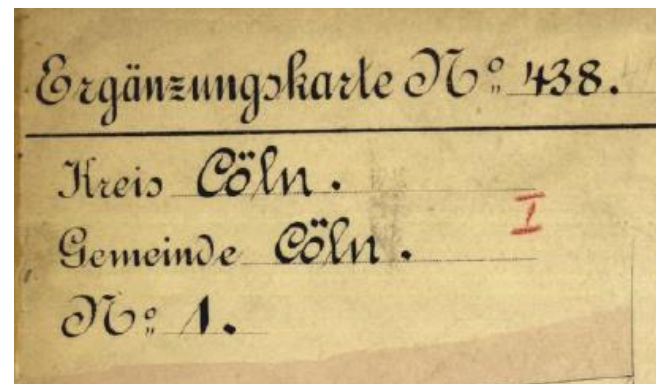 Ergänzungskarte No. 438.
Kreis Cöln.
I
Gemeinde Cöln.
No. 1.